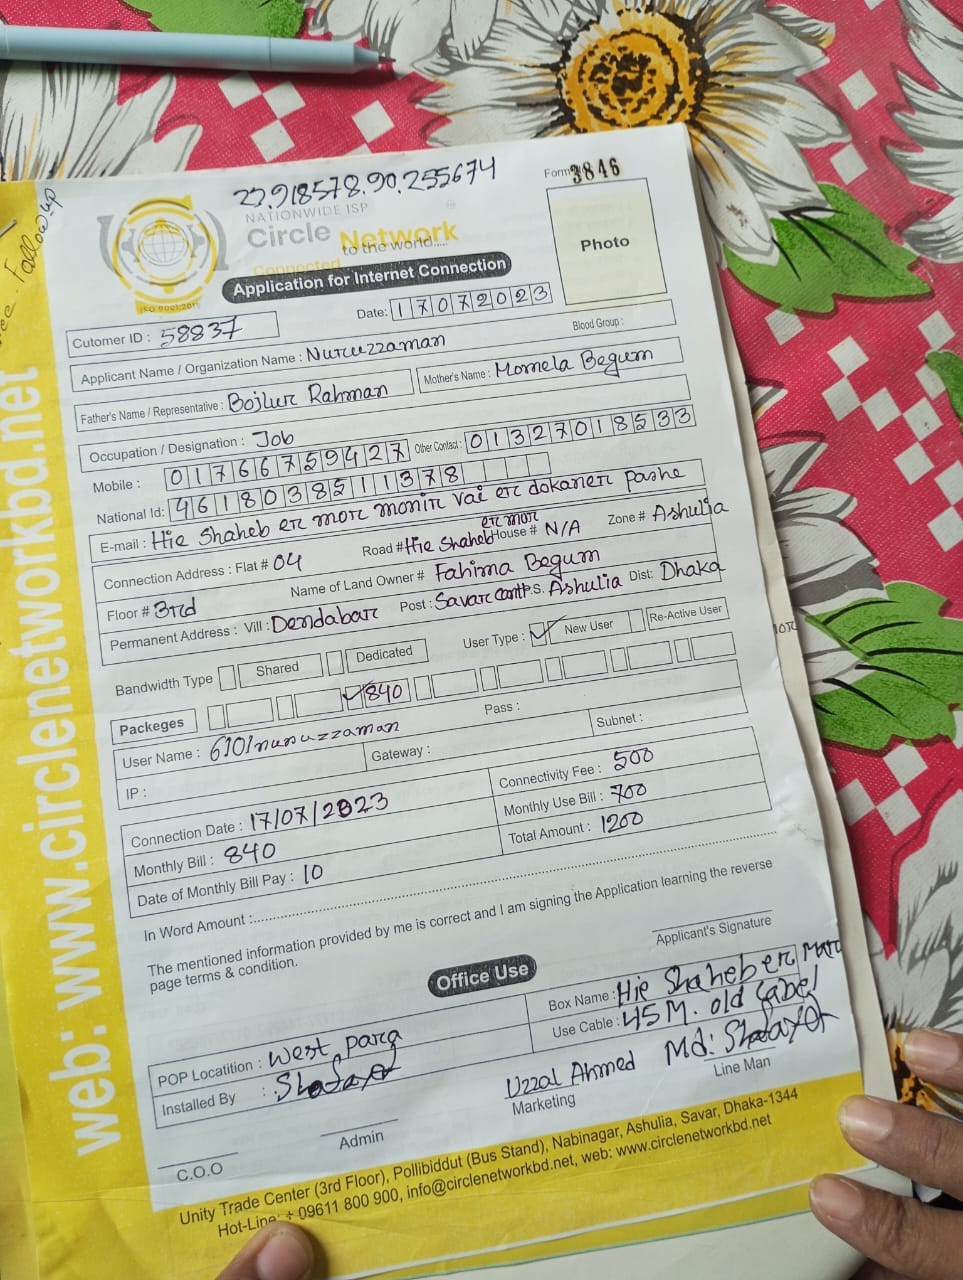 22.918578.90.255674
Form 3846
NATIONWIDE ISP
Circle Network
Connected to the world.....
ISO 9001:201
Photo
Application for Internet Connection
Date: 17072023
Cutomer ID : 58837
Blood Group :
Applicant Name / Organization Name : Nuruzzaman
Father's Name / Representative : Bojlur Rahman Mother's Name : Momela Begum
Occupation / Designation : Job
Mobile : 01766759427 Other Contact : 01327018533
National Id: 4618038511378
E-mail : Hie Shaheb er mor monir vai er dokaner pashe
Connection Address : Flat # 04 Road # Hie Shaheb er mor House # N/A Zone # Ashulia
Floor # 3rd Name of Land Owner # Fahima Begum
Permanent Address : Vill : Dendabar Post : Savar Cantt P.S. Ashulia Dist: Dhaka
Bandwidth Type Shared Dedicated User Type : ✓ New User Re-Active User
Packeges ✓ 840
User Name : Pass :
IP : Gateway : Subnet :
Connection Date : 17/07/2023 Connectivity Fee : 500
Monthly Bill : 840 Monthly Use Bill : 700
Date of Monthly Bill Pay : 10 Total Amount : 1200
In Word Amount :
The mentioned information provided by me is correct and I am signing the Application learning the reverse
page terms & condition.
Applicant's Signature
Office Use
POP Locatition : West para Box Name : Hie Shaheb er
Installed By : Use Cable : 45M. old Cabel
Uzzal Ahmed Md:
C.O.O Admin Marketing Line Man
Unity Trade Center (3rd Floor), Pollibiddut (Bus Stand), Nabinagar, Ashulia, Savar, Dhaka-1344
Hot-Line: + 09611 800 900, info@circlenetworkbd.net, web: www.circlenetworkbd.net
web: www.circlenetworkbd.net
Follow up